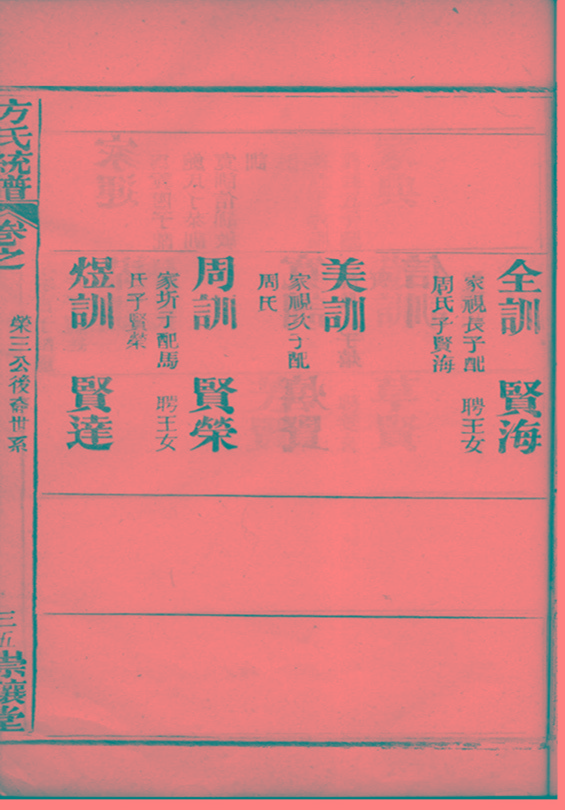 全訓
家視長子配
周氏子賢海
賢海
聘王女
美訓
家視次子配
周氏
周訓
家圻子配馬
氏子賢榮
賢榮
聘王女
煜訓
賢達
方氏統譜
卷之
榮三公後奇世系
三五
崇讓堂